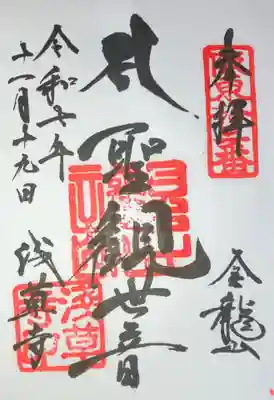 奉拝
坂東十三番
金龍山
聖観世音
令和七年
十一月十九日
浅草寺